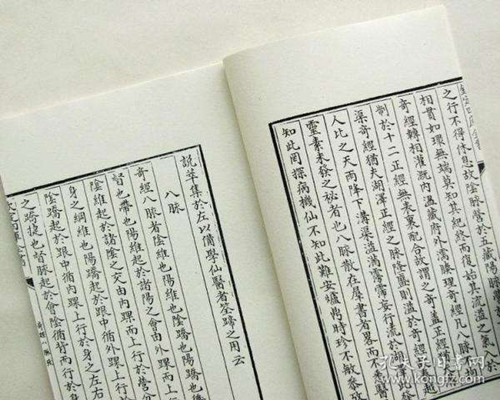 之行不得休息故陰脈營於五臟陽
相貫如環無端莫知其紀終而復始其流溢
奇經轉相灌溉內溫臟腑外濡腠理奇經凡八脈
制於十二正經無表裏配合故謂之奇蓋正經
渠奇經猶夫湖澤正經之脈隆盛則溢於奇
人比之天雨降下溝渠溢滿霶霈妄行流於湖
靈素未發之秘者也八脈散在羣書者略而不
知此罔探病機仙不知此難安爐鼎時珍不敏參攷
說萃集於左以備學仙醫者筌蹄之用云
八脈
奇經八脈者陰維也陽維也陰蹻也陽蹻也
督也帶也陽維起於諸陽之會由外踝而上
陰維起於諸陰之交由內踝而上行於營分
身之綱維也陽蹻起於跟中循外踝上行於身之左右
陰蹻起於跟中循內踝上行於身之左右
之蹻捷也督脈起於會陰循背而行於